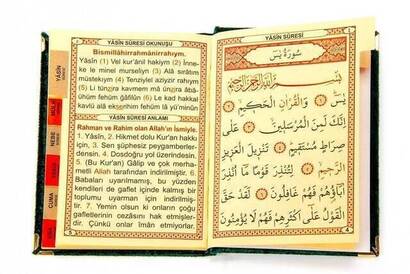 YÂSÎN SÛRESİ OKUNUŞU
Bismillâhirrahmânirrahıym.
Yâsîn (1) Vel kur'ânil hakiym (2) İnne-
ke le minel murseliyn (3) Alâ sırâtım
müstekıym (4) Tenziylel aziyzir rahıym
(5) Li tünzira kavmem mâ ünzira âbâ-
ühüm fehüm ğâfilûn (6) Le kad hakkal
kavlü alâ ekserihim fehüm lâ yü'minûn
YÂSÎN SÛRESİ ANLAMI
Rahman ve Rahim olan Allah'ın İsmiyle.
1. Yâsîn, 2. Hikmet dolu Kur'an hakkı
için, 3. Sen şüphesiz peygamberler-
densin. 4. Dosdoğru yol üzerindesin.
5. (Bu Kur'an) Gâlip ve çok merha-
metli Allah tarafından indirilmiştir. 6.
Babaları uyarılmamış, bu yüzden
kendileri de gaflet içinde kalmış bir
toplumu uyarman için indirilmiş-
tir. 7. Yemin olsun ki onların çoğu
gafletlerinin cezasını hak etmişler-
dir. Çünkü onlar iman etmiyorlar.
YÂSÎN
MÜLK
NEBE
CUMA
YÂSÎN SÛRESİ
سُورَةُ يٰسٓ
بِسْمِ اللّٰهِ الرَّحْمٰنِ الرَّحِيمِ
يٰسٓ ۝ وَالْقُرْاٰنِ الْحَكِيمِ ۝
اِنَّكَ لَمِنَ الْمُرْسَلِينَ ۝ عَلٰى
صِرَاطٍ مُسْتَقِيمٍ ۝ تَنْزِيلَ الْعَزِيزِ
الرَّحِيمِ ۝ لِتُنْذِرَ قَوْمًا مَٓا اُنْذِرَ
اٰبَٓاؤُهُمْ فَهُمْ غَافِلُونَ ۝ لَقَدْ حَقَّ
الْقَوْلُ عَلٰٓى اَكْثَرِهِمْ فَهُمْ لَا يُؤْمِنُونَ
4